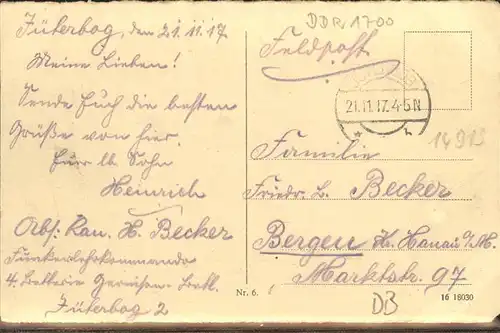 DDR 1700
Jüterbog, den 21.11.17
Meine Lieben!
Sende Euch die besten
Grüße von hier.
Euer lb Sohn
Heinrich
Abs: Kan. H. Becker
Funkerlehrkommando
4. Batterie
Jüterbog 2
Feldpost
21.11.17. 4-5N
* h
14913
Familie
Friedr. L. Becker
Bergen Kr. Hanau a/M.
Marktstr. 97
Nr. 6.
DB
16 18030